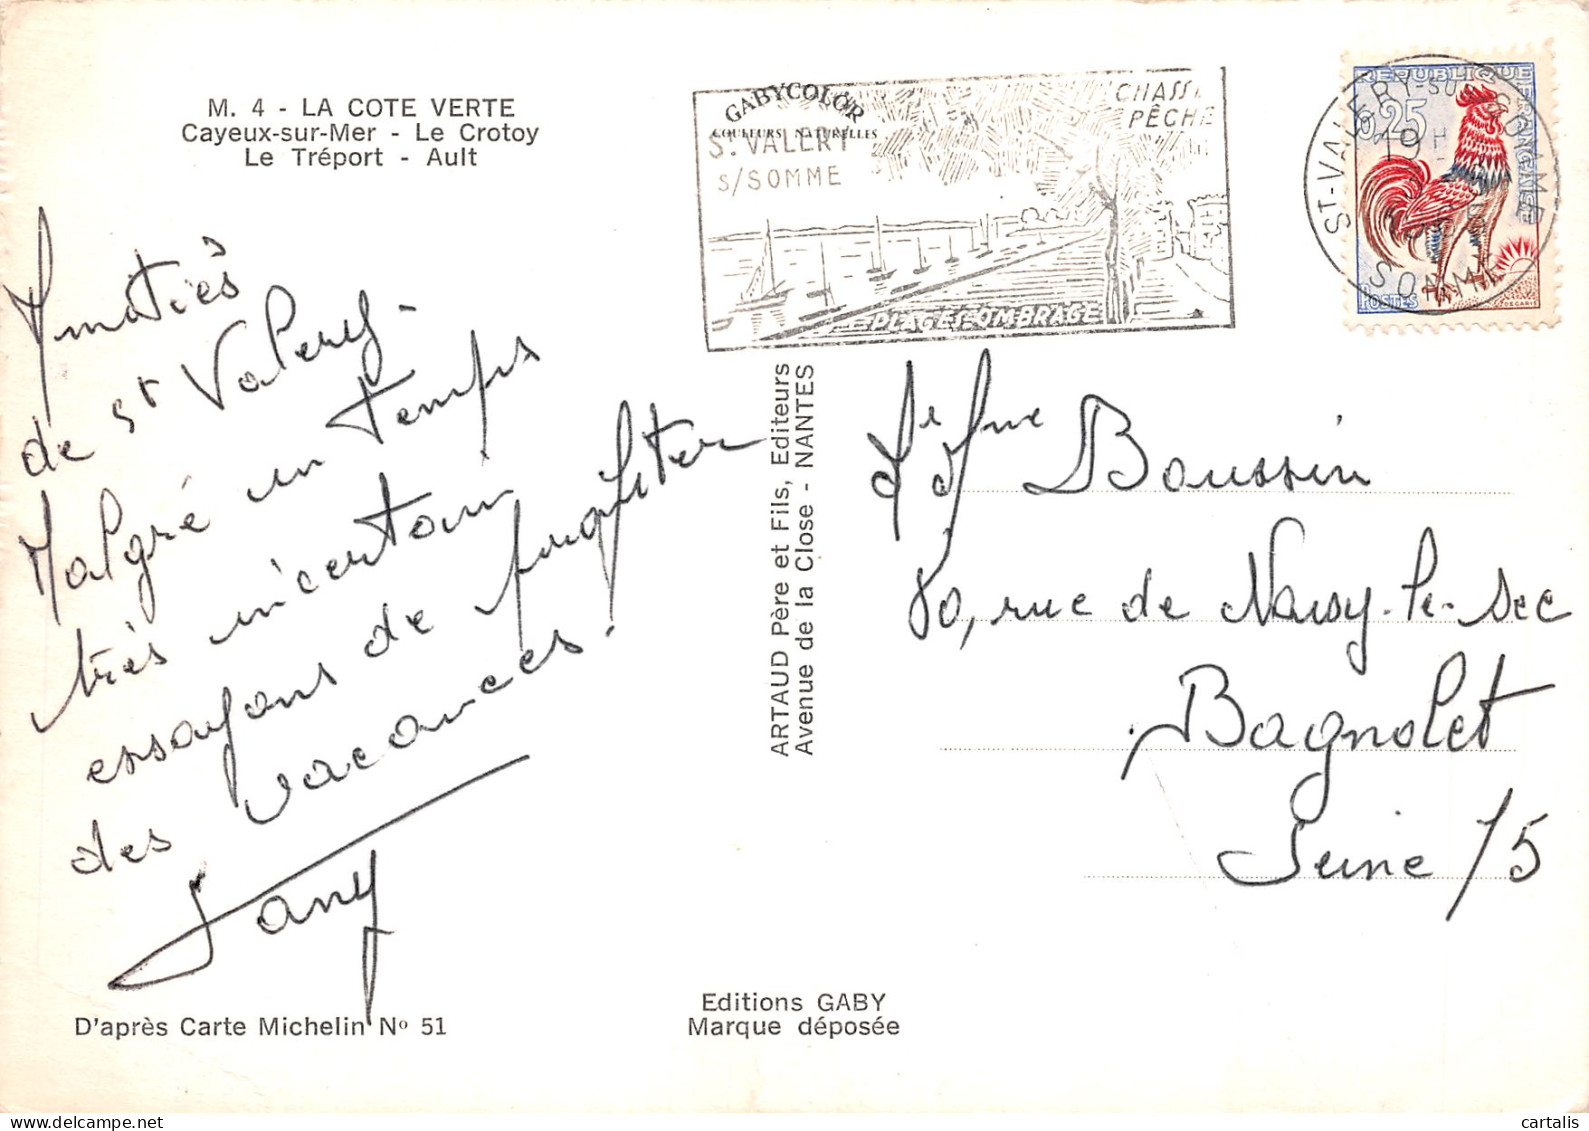 M. 4 - LA COTE VERTE
Cayeux-sur-Mer - Le Crotoy
Le Tréport - Ault
Amitiés
de St Valery.
Malgré un temps
très incertain
essayons de profiter
des vacances.
Dany
D'après Carte Michelin No 51
GABYCOLOR
COULEURS NATURELLES
ST VALERY
S/SOMME
CHASSE
PÊCHE
PLAGES OMBRAGE
ARTAUD Père et Fils, Editeurs
Avenue de la Close - NANTES
Editions GABY
Marque déposée
REPUBLIQUE FRANÇAISE
0,25
POSTES
DECARIS
ST-VALERY-SUR-SOMME
19 H
SOMME
Mr Mme Boussin
80, rue de Noisy-le-Sec
Bagnolet
Seine 75
cartalis